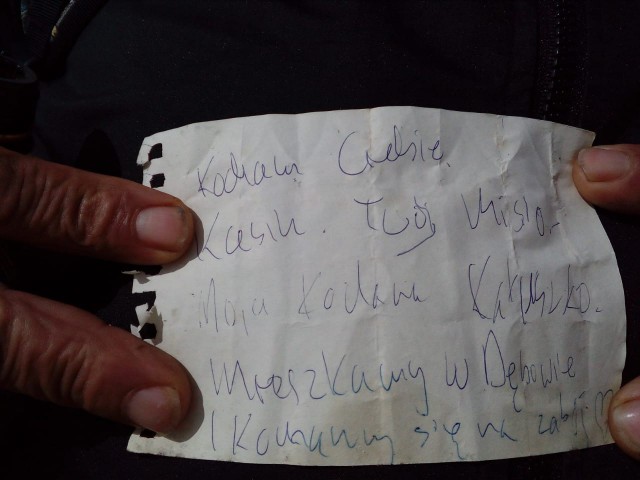 Kocham Ciebie.
Kasiu. Twój Misio.
Moja Kochana Kakuszko.
Mieszkamy w Dębowie
I Kochamy się na zabój